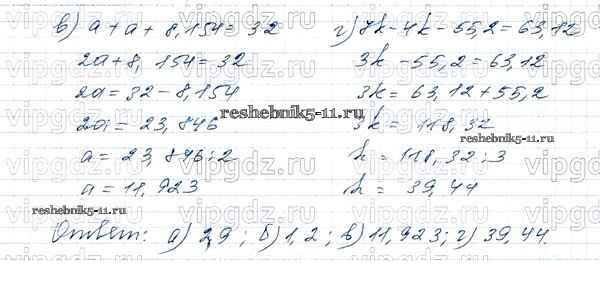 в) a + a + 8,154 = 32
2a + 8,154 = 32
2a = 32 - 8,154
2a = 23,846
a = 23,846 : 2
a = 11,923
г) 7k - 4k - 55,2 = 63,12
3k - 55,2 = 63,12
3k = 63,12 + 55,2
3k = 118,32
k = 118,32 : 3
k = 39,44
Ответ: а) 2,9; б) 1,2; в) 11,923; г) 39,44.
reshebnik5-11.ru
reshebnik5-11.ru
reshebnik5-11.ru
vipgdz.ru